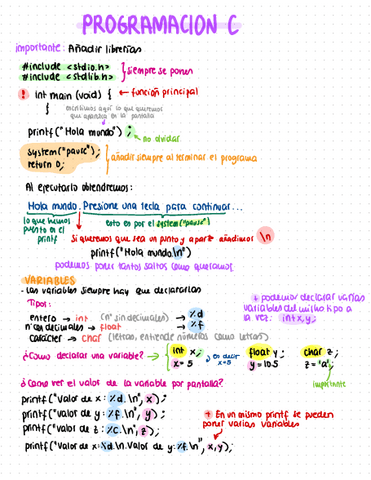 PROGRAMACION C
importante: Añadir librerías
#include <stdio.h>
#include <stdlib.h>
siempre se ponen
! int main (void) { ← función principal
{ escribimos aquí lo que queremos
que aparezca en la pantalla
printf("Hola mundo") ;
no olvidar
system("pause");
return 0;
añadir siempre al terminar el programa
Al ejecutarlo obtendremos:
Hola mundo. Presione una tecla para continuar...
lo que hemos
puesto en el
printf
esto es por el system("pause")
Si queremos que sea un punto y aparte añadimos \n
printf("Hola mundo.\n")
podemos poner tantos saltos como queramos
VARIABLES
- Las variables siempre hay que declararlas
Tipos:
entero → int (nº sin decimales) → %d
nº con decimales → float → %f
carácter → char (letras, entiende números como letras)
+ podemos declarar varias
variables del mismo tipo a
la vez: int x,y;
¿Como declarar una variable? →
int x;
x = 5
es decir
x=5
float y;
y = 10.5
char z;
z = 'a';
importante
¿Como ver el valor de la variable por pantalla?
printf("Valor de x: %d.\n", x);
printf("Valor de y: %f.\n", y);
printf("Valor de z: %c.\n", z);
+ En un mismo printf se pueden
poner varias variables
printf("Valor de x: %d.\n. Valor de y: %f.\n", x,y);